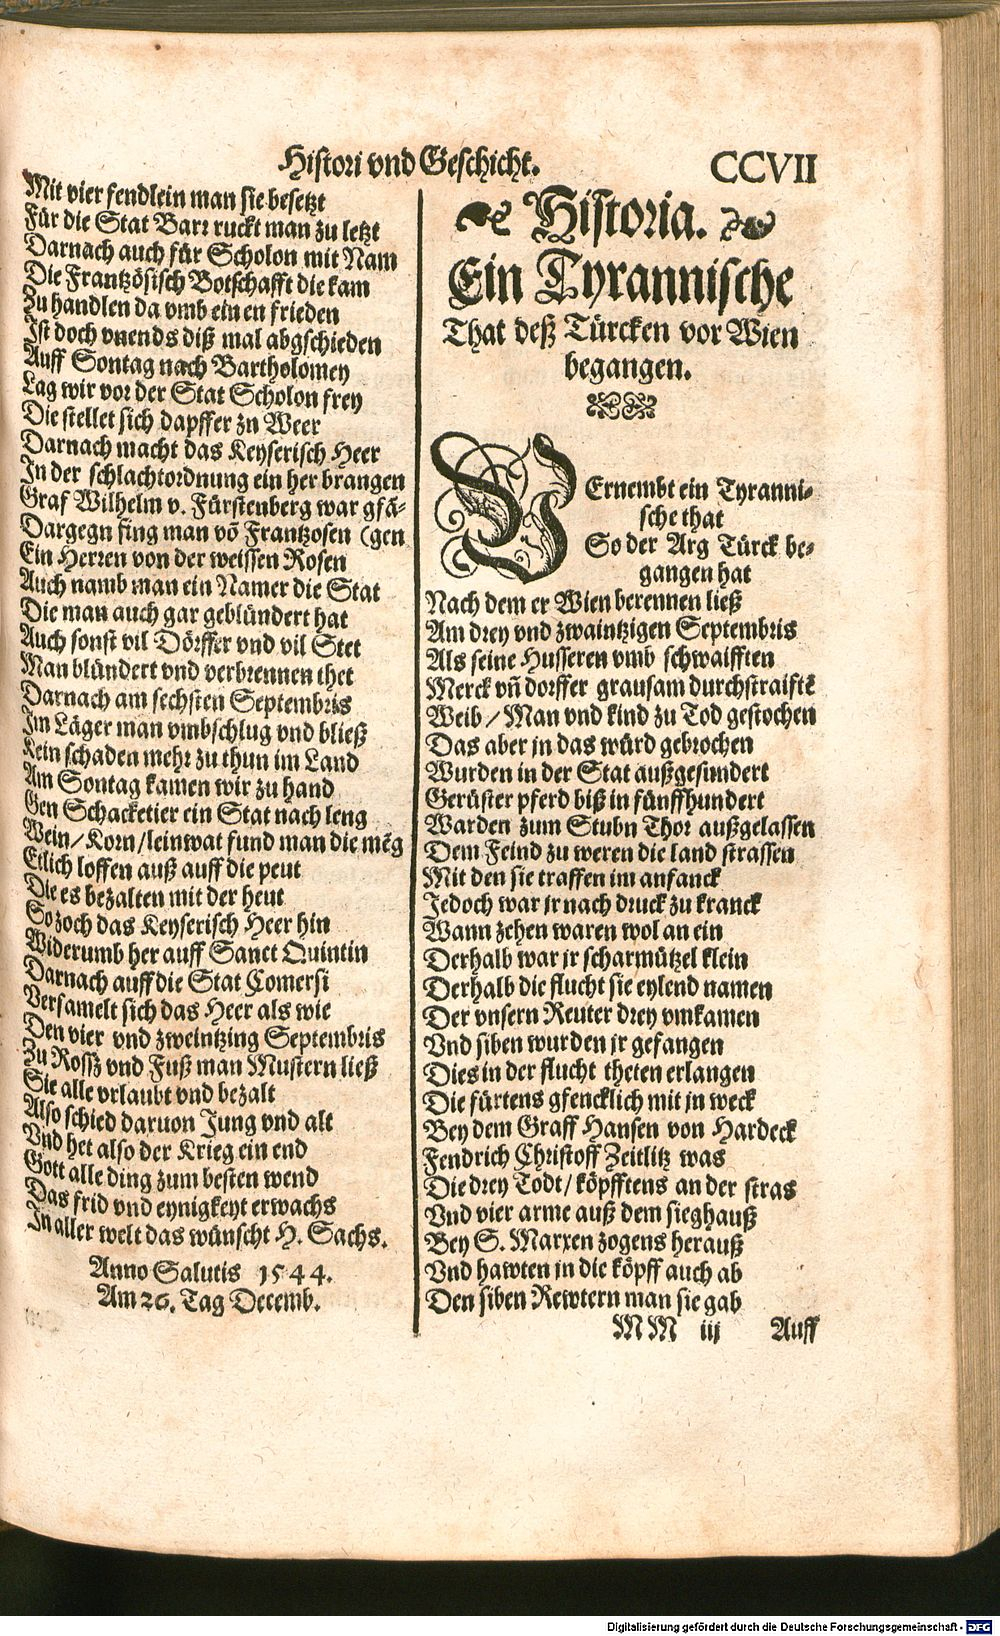 Histori vnd Geschicht. CCVII
Mit vier fendlein man sie besetzt
Für die Stat Barr ruckt man zu letzt
Darnach auch für Scholon mit Nam
Die Frantzösisch Botschafft die kam
Zu handlen da vmb einen frieden
Ist doch vnends diß mal abgschieden
Auff Sontag nach Bartholomey
Lag wir vor der Stat Scholon frey
Die stellet sich dapffer zu Weer
Darnach macht das Keyserisch Heer
In der schlachtordnung ein her brangen
Graf Wilhelm v. Fürstenberg war gfā-
Dargegn fing man vō Frantzosen (gen
Ein Herren von der weissen Rosen
Auch namb man ein Namer die Stat
Die man auch gar geblündert hat
Auch sonst vil Dörffer vnd vil Stet
Man blündert vnd verbrennen thet
Darnach am sechsten Septembris
Im Läger man vmbschlug vnd bließ
Kein schaden mehr zu thun im Land
Am Sontag kamen wir zu hand
Gen Schacketier ein Stat nach leng
Wein/Korn/leinwat fund man die mēg
Etlich loffen auß auff die peut
Die es bezalten mit der heut
So zoch das Keyserisch Heer hin
Widerumb her auff Sanct Quintin
Darnach auff die Stat Comersi
Versamelt sich das Heer als wie
Den vier vnd zweintzing Septembris
Zu Rossz vnd Fuß man Mustern ließ
Sie alle vrlaubt vnd bezalt
Also schied daruon Jung vnd alt
Vnd het also der Krieg ein end
Gott alle ding zum besten wend
Das frid vnd eynigkeyt erwachs
In aller welt das wünscht H. Sachs.
Anno Salutis 1544.
Am 26. Tag Decemb.
Historia.
Ein Tyrannische
That deß Türcken vor Wien
begangen.
VErnembt ein Tyranni-
sche that
So der Arg Türck be-
gangen hat
Nach dem er Wien berennen ließ
Am drey vnd zwaintzigen Septembris
Als seine Husseren vmb schwaifften
Merck vñ dorffer grausam durchstraiftē
Weib/Man vnd kind zu Tod gestochen
Das aber jn das würd gebrochen
Wurden in der Stat außgesundert
Gerüster pferd biß in fünffhundert
Warden zum Stubn Thor außgelassen
Dem Feind zu weren die land strassen
Mit den sie traffen im anfanck
Jedoch war jr nach druck zu kranck
Wann zehen waren wol an ein
Derhalb war jr scharmützel klein
Derhalb die flucht sie eylend namen
Der vnsern Reuter drey vmkamen
Vnd siben wurden jr gefangen
Dies in der flucht theten erlangen
Die fürtens gfencklich mit jn weck
Bey dem Graff Hansen von Hardeck
Fendrich Christoff Zeitlitz was
Die drey Todt/köpfftens an der stras
Vnd vier arme auß dem sieghauß
Bey S. Marxen zogens herauß
Vnd hawten jn die köpff auch ab
Den siben Rewtern man sie gab
MM iij Auff
Digitalisierung gefördert durch die Deutsche Forschungsgemeinschaft - DFG